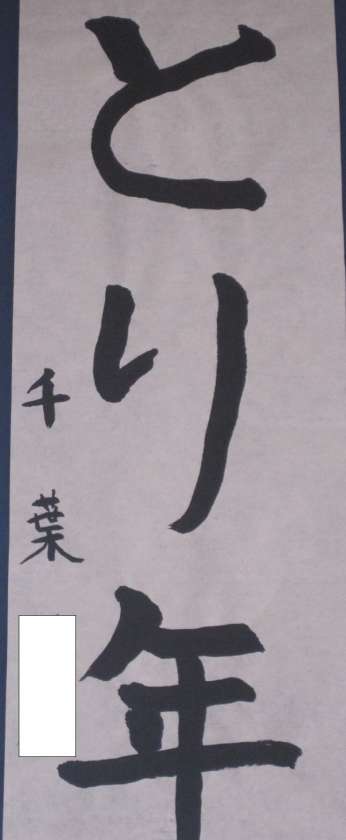 とり年
千葉